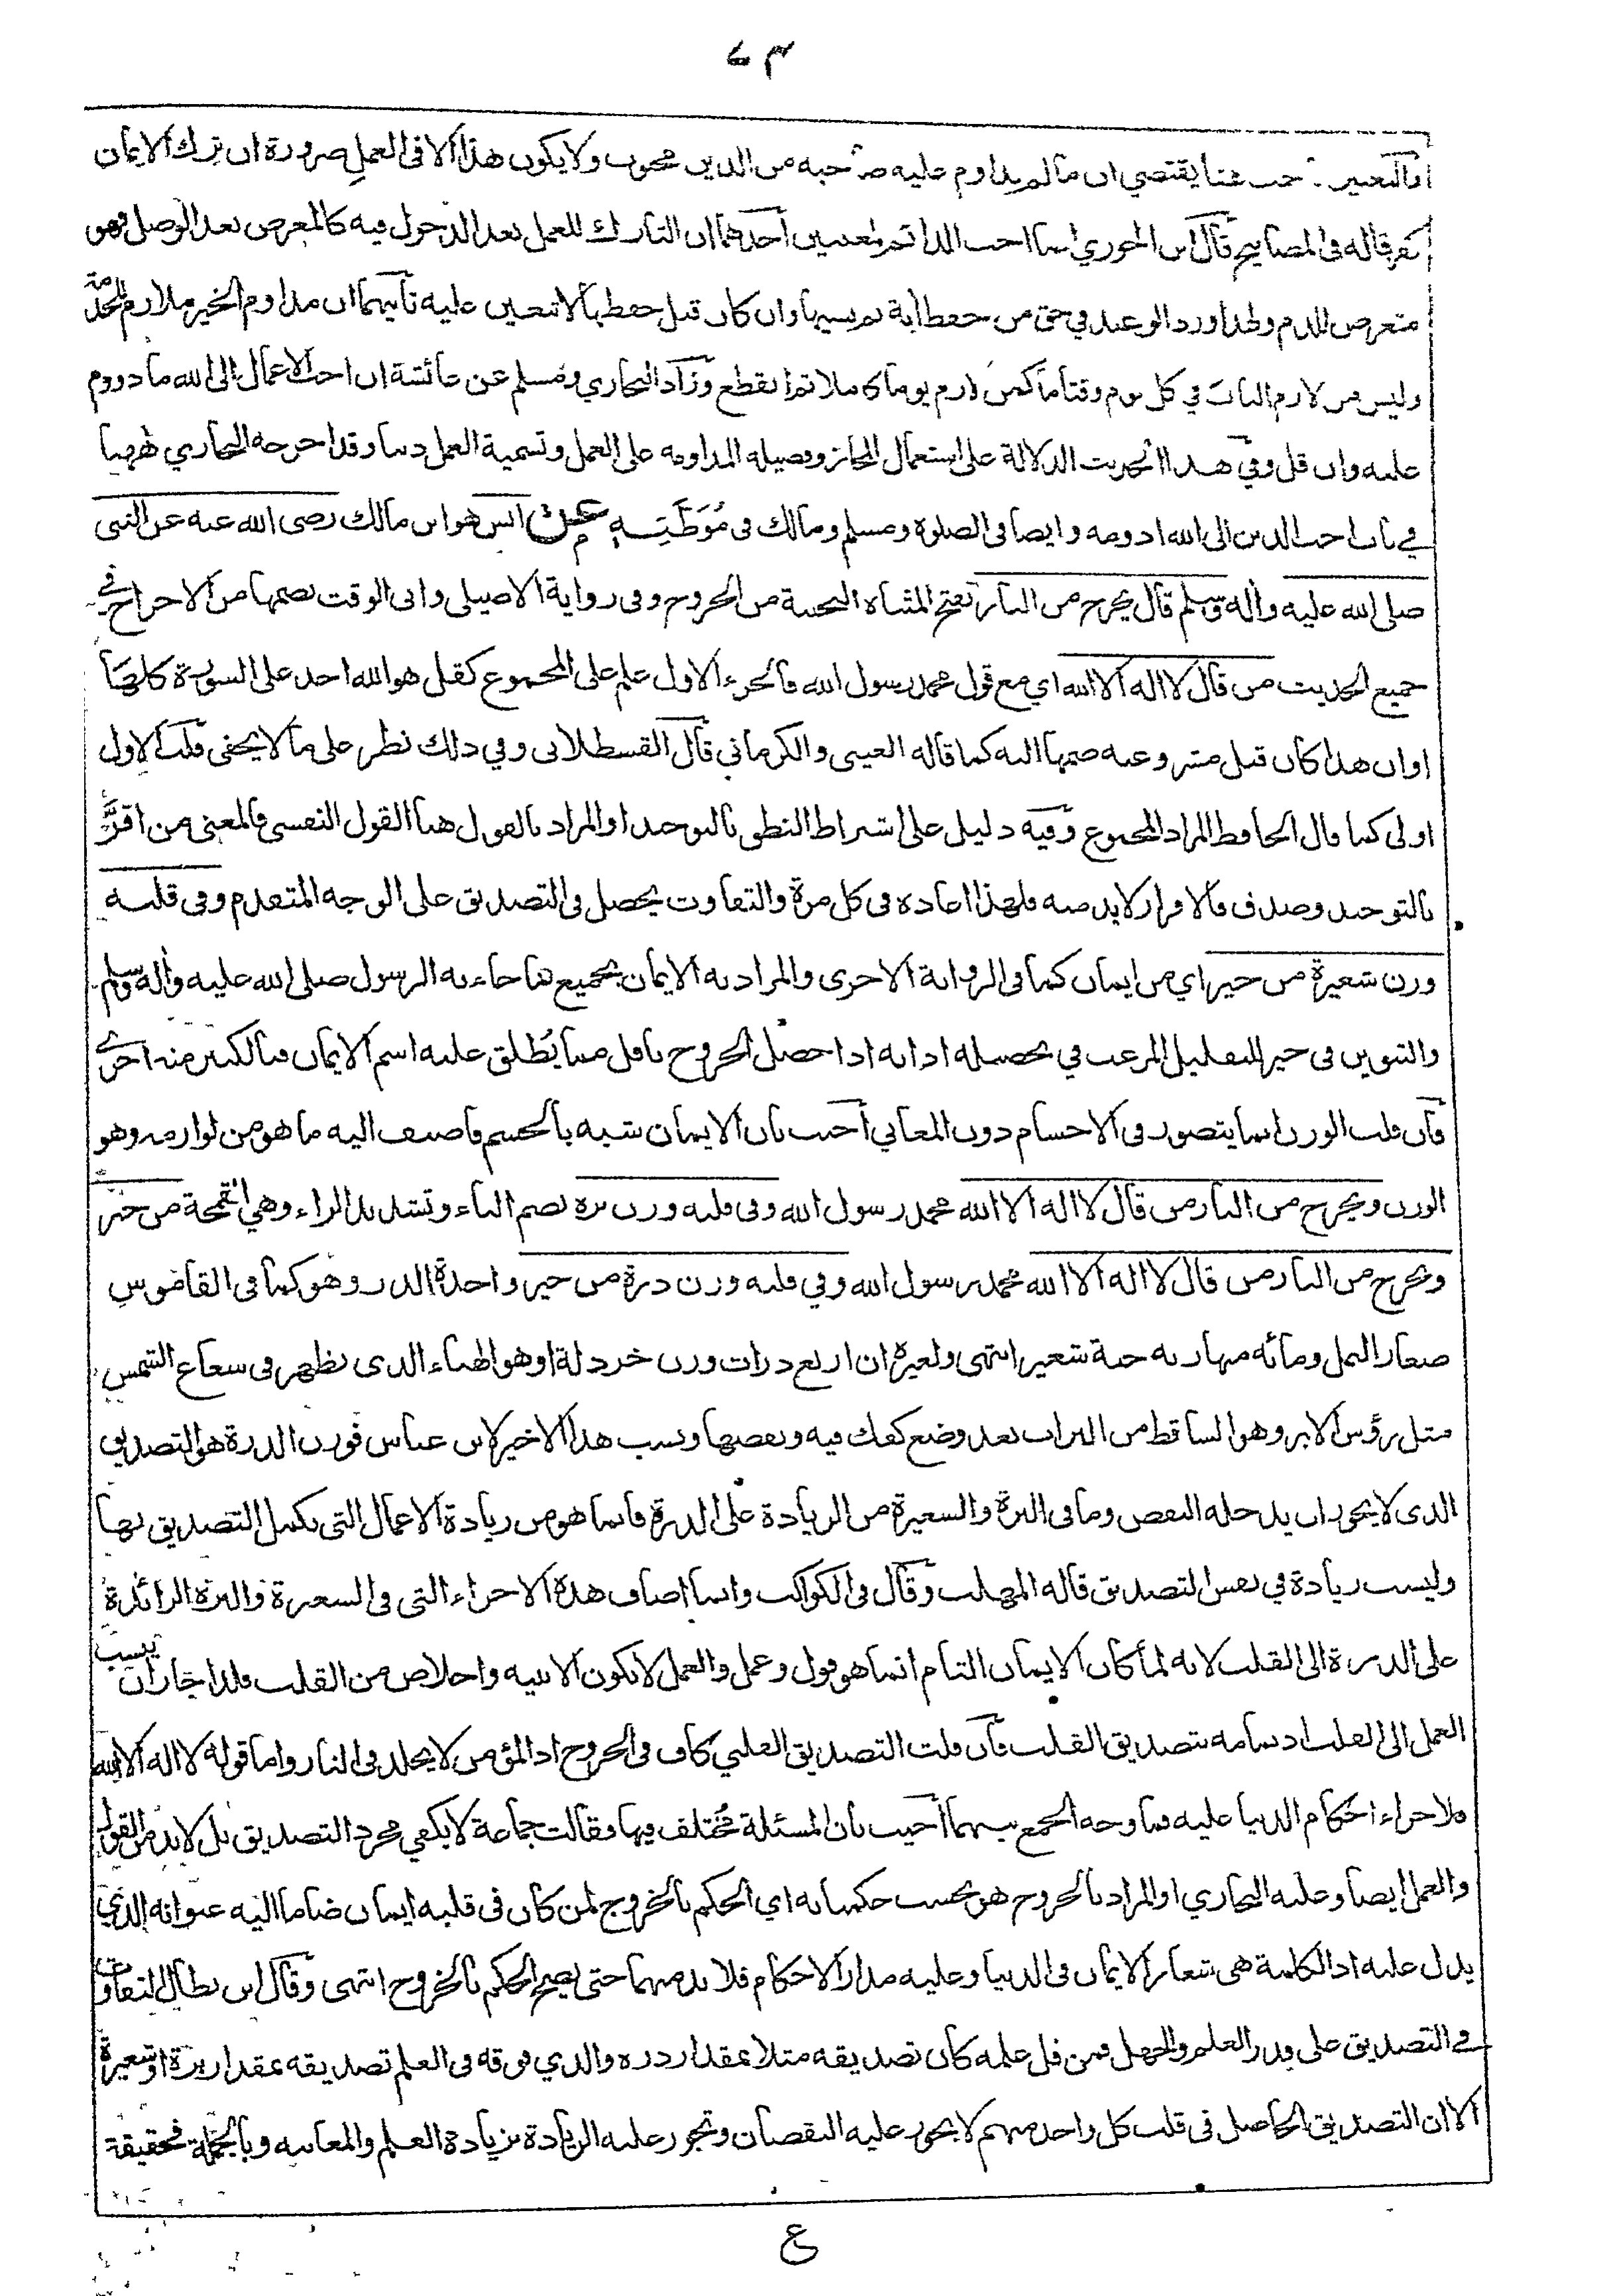 ٧٣
والتعبير باحب هنا يقتضي ان ما لم يداوم عليه صاحبه من الدين محبوب ولا يكون هذا الا في العمل ضرورة ان ترك الايمان
كفر قاله في المصابيح قال ابن الجوزي انما احب الدائم لمعنيين أحدهما ان التارك للعمل بعد الدخول فيه كالمعرض بعد الوصل فهو
متعرض للذم ولهذا ورد الوعيد في حق من حفظ آية ثم نسيها وان كان قبل حفظها لا تتعين عليه ثانيهما ان مداوم الخير ملازم للخدمة
وليس من لازم الباب في كل يوم وقتا ما كمن لازم يوما كاملا ثم انقطع وزاد البخاري ومسلم عن عائشة ان احب الاعمال الى الله ما دووم
عليه وان قل وفي هذا الحديث الدلالة على استعمال المجاز وفضيلة المداومة على العمل وتسمية العمل دينا وقد اخرجه البخاري ههنا
في باب احب الدين الى الله ادومه وايضا في الصلوة ومسلم ومالك في مُوَطَّئِه عن انس هو ابن مالك رضى الله عنه عن النبي
صلى الله عليه وأله وسلم قال يخرج من النار بفتح المثناه التحتية من الخروج وفى رواية الاصيلى وابى الوقت بضمها من الاخراج في
جميع الحديث من قال لا اله الا الله اي مع قول محمد رسول الله فالجزء الاول علم على المجموع كقل هو الله احد على السورة كلها
او ان هذا كان قبل مشروعية ضمها اليه كما قاله العيني والكرماني قال القسطلانى وفي ذلك نظر على ما لا يخفى قلت الاول
اولى كما قال الحافظ المراد المجموع وفيه دليل على اشتراط النطق بالتوحيد او المراد بالقول هنا القول النفسي فالمعنى من اقرَّ
بالتوحيد وصدق فالاقرار لا بد منه فلهذا اعاده في كل مرة والتفاوت يحصل في التصديق على الوجه المتقدم وفي قلبه
وزن شعيرة من خير اي من ايمان كما في الرواية الاخرى والمراد به الايمان بجميع ما جاء به الرسول صلى الله عليه وأله وسلم
والتنوين في خير للتقليل المرغب في تحصيله اذ انه اذا حصل الخروج باقل مما يُطلق عليه اسم الايمان فبالكثير منه احرى
فان قلت الوزن انما يتصور في الاجسام دون المعاني أجيب بان الايمان شبه بالجسم فاضيف اليه ما هو من لوازمه وهو
الوزن ويخرج من النار من قال لا اله الا الله محمد رسول الله وفى قلبه وزن برة بضم الباء وتشديد الراء وهي القمحة من خير
ويخرج من النار من قال لا اله الا الله محمد رسول الله وفي قلبه وزن ذرة من خير واحدة الذر وهو كما في القاموس
صغار النمل ومائه منها زنة حبة شعير انتهى ولغيره ان اربع ذرات وزن خردلة او هو الهباء الذى يظهر في شعاع الشمس
مثل رؤس الابر وهو الساقط من التراب بعد وضع كفك فيه ونفضها ونسب هذا الاخير لابن عباس فوزن الذرة هو التصديق
الذى لا يجوز ان يدخله النقص وما في البرة والشعيرة من الزيادة على الذرة فانما هو من زيادة الاعمال التي يكمل التصديق بها
وليست زيادة في نفس التصديق قاله المهلب وقال في الكواكب وانما اضاف هذه الاجزاء التي في الشعيرة والبرة الزائدة
على الذرة الى القلب لانه لما كان الايمان التام انما هو قول وعمل والعمل لا يكون الا بنيه واخلاص من القلب فلذا جاز ان ينسب
العمل الى القلب اذ تمامه بتصديق القلب فان قلت التصديق القلبي كاف في الخروج اذ المؤمن لا يخلد في النار واما قوله لا اله الا الله
فلاجراء احكام الدنيا عليه فما وجه الجمع بينهما أجيب بان المسئلة مختلف فيها فقالت جماعة لا يكفي مجرد التصديق بل لا بد من القول
والعمل ايضا وعليه البخاري او المراد بالخروج هو بحسب حكمنا به اي الحكم بالخروج لمن كان في قلبه ايمان ضاما اليه عنوانه الذي
يدل عليه اذ الكلمة هي شعار الايمان في الدنيا وعليه مدار الاحكام فلا بد منهما حتى يصح الحكم بالخروج انتهى وقال ابن بطال التفاوت
في التصديق على قدر العلم والجهل فمن قل علمه كان تصديقه مثلا بمقدار ذرة والذي فوقه في العلم تصديقه بمقدار برة او شعيرة
الا ان التصديق الحاصل في قلب كل واحد منهم لا يجوز عليه النقصان وتجوز عليه الزيادة بزيادة العلم والمعاينه وبالجملة فحقيقة
ع